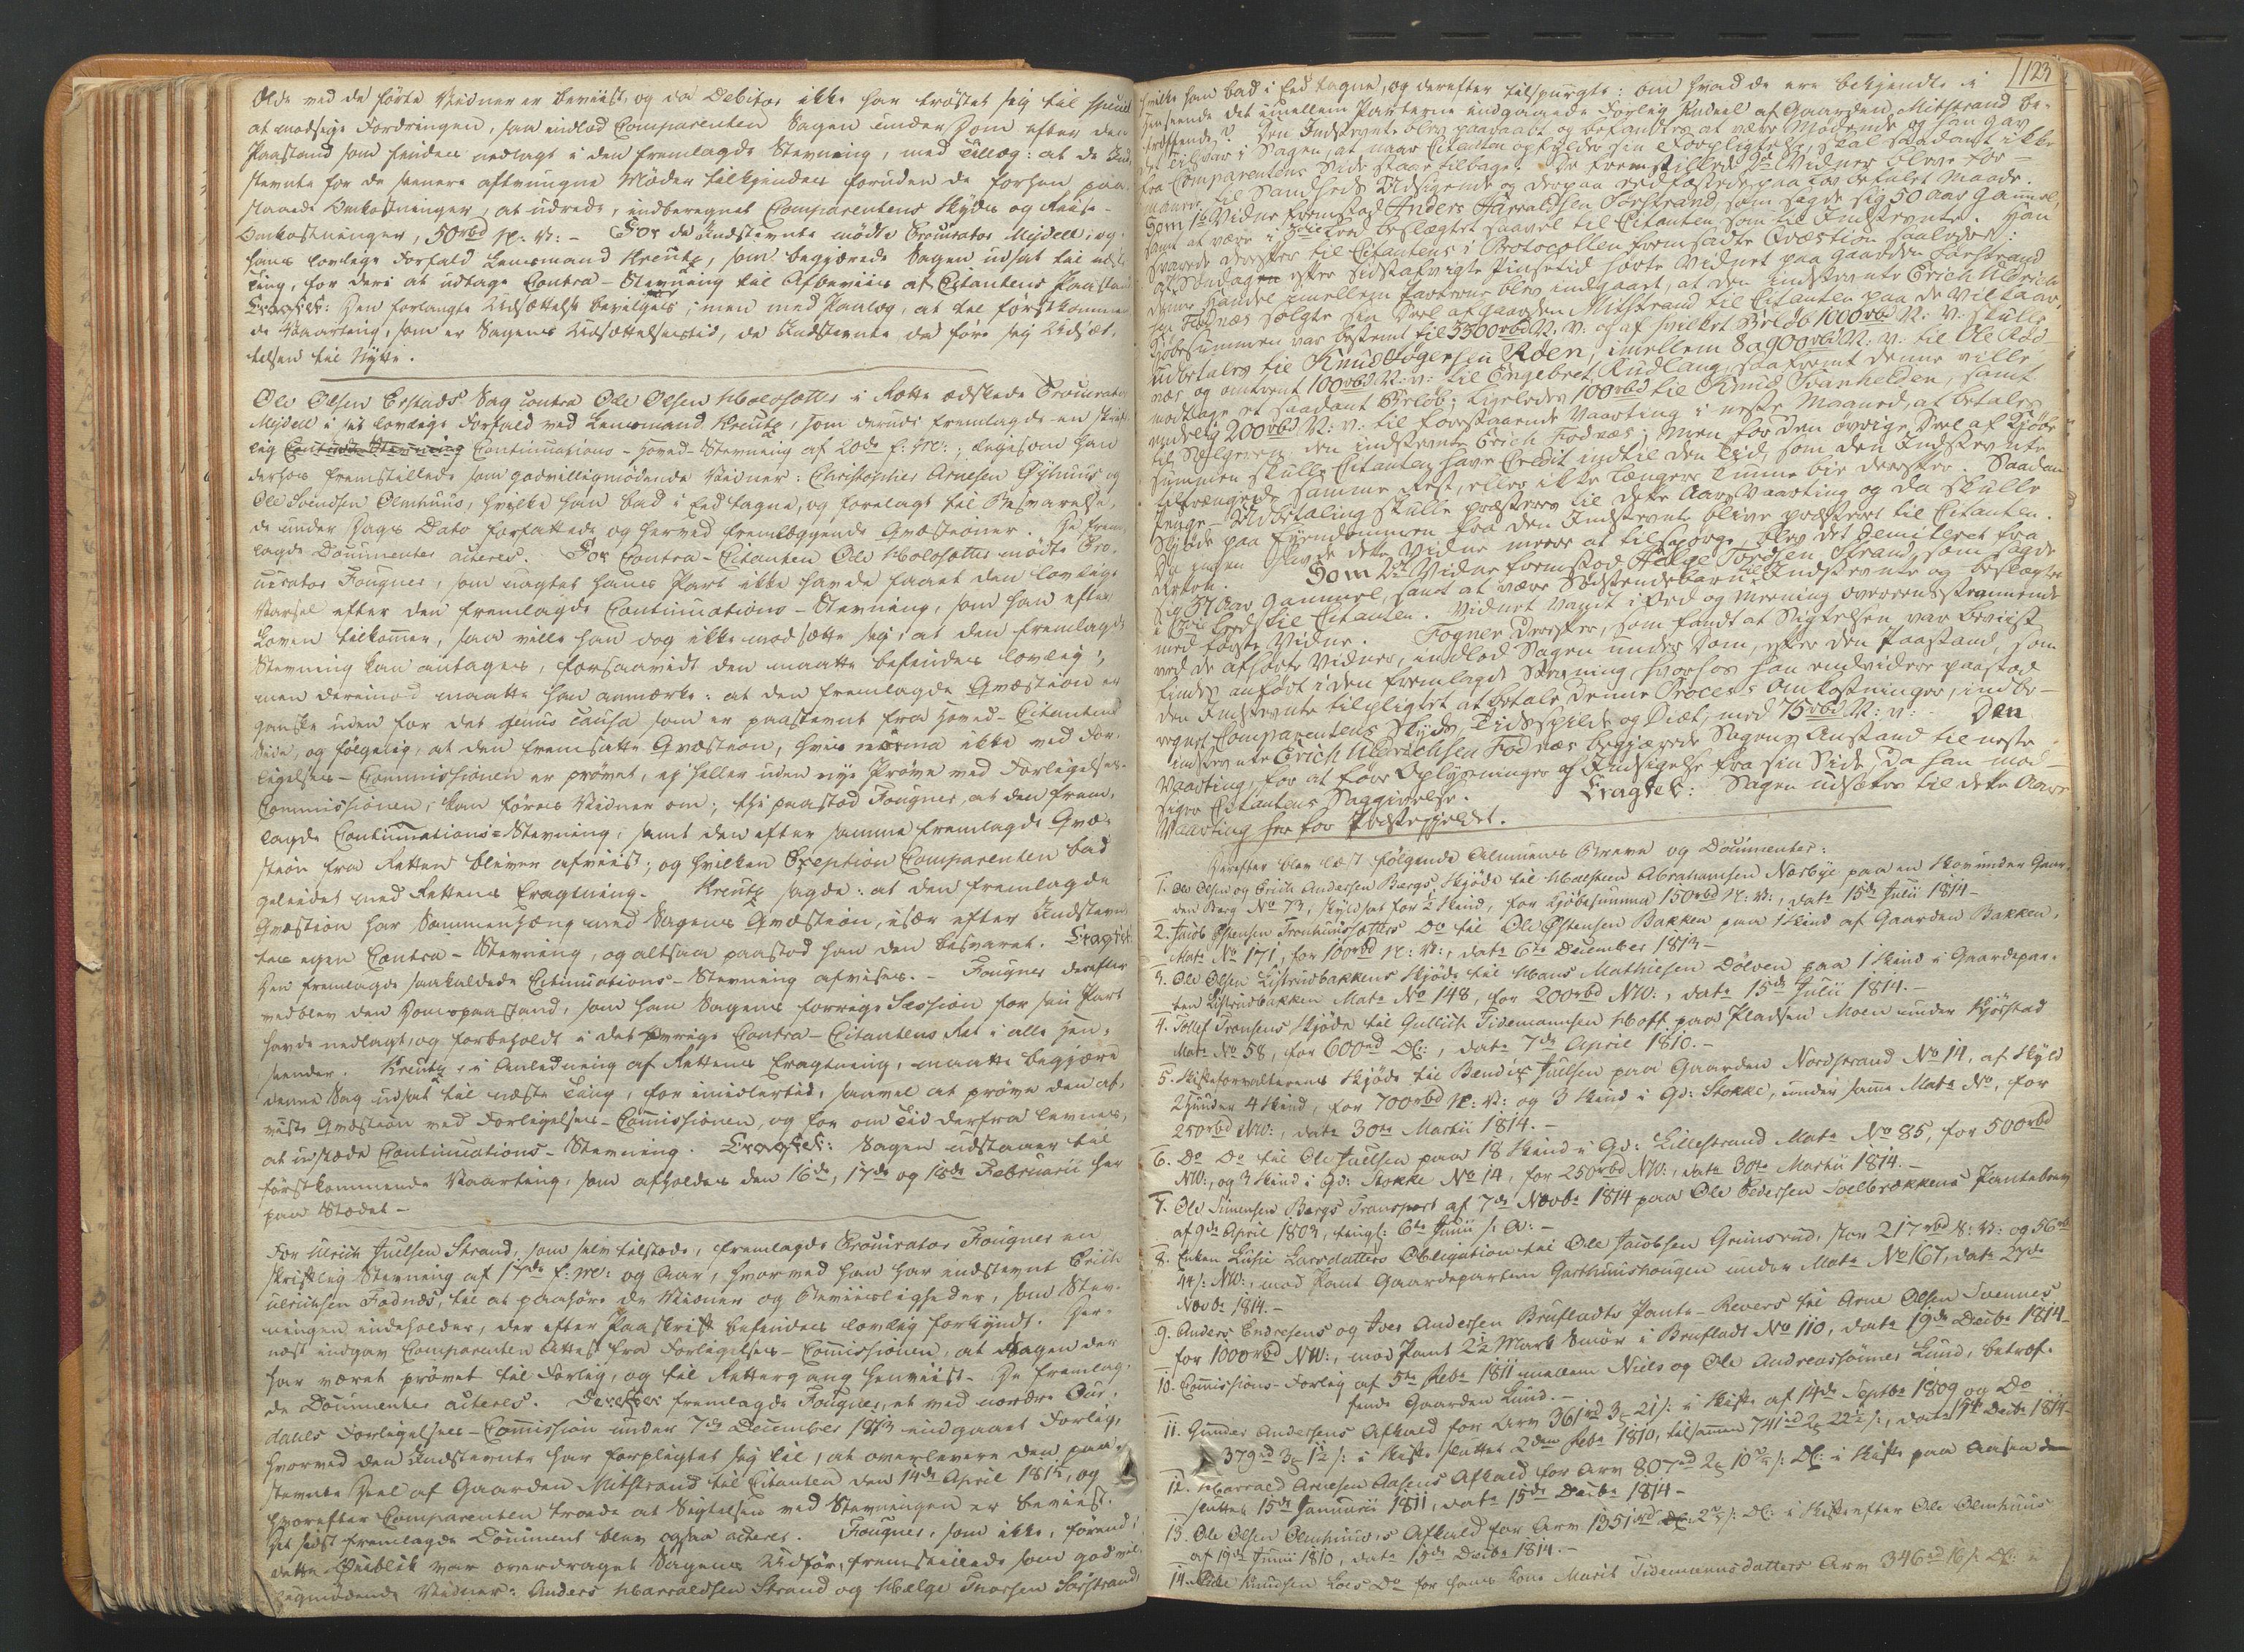 Olde ved de förte Vidner er beviist, og da Debitor ikke har tröstet sig til
at modsige Fordringen, saa indlod Comparenten Sagen under Dom efter den
Paastand som findes nedlagt i den fremlagde Stevning, med Tillæg: at de Ind-
stevnte for de senere aftvungne Möder tilkjendes foruden de forhen paa-
staaede Omkostninger, at udrede, indberegnet Comparentens Skyds og Reise-
Omkostninger, 50rbd N: V: - For de Indstevnte mödte Procurator Mejdell; og
hans lovlige Forfald Lensmand Kreutz, som begjærede Sagen udsat til næste
Ting, for deri at udtage Contra-Stevning til Afbeviis af Citantens Paastand
Eragtet: Den forlangte Udsættelse bevilges; men med Paalæg, at til förstkommen
de Vaarting, som er Sagens Udsættelsestid, de Indstevnte da före sig Udsæt-
telsen til Nytte.
Ole Olsen Erstads Sag contra Ole Olsen Holosætter i Rette ædskede Procurator
Mejdell i sit lovlige Forfald ved Lensmand Kreutz, som derude fremlagde en skrift-
lig Continuations-Hoved-Stevning af 20de f: M:; ligesom han
derhos fremstillede som godvilligmödende Vidner: Christopher Arnesen Öjhuus og
Ole Svendsen Olmhuus, hvilke han bad i Eed tagne, og forelagt til Besvarelse,
de under Dags Dato forfattede og herved fremlæggende Qvæstioner. De frem-
lagde Documenter acteres. For Contra-Citanten Ole Holosætter mödte Pro-
curator Fougner, som uagtet hans Part ikke havde faaet den lovlige
Varsel efter den fremlagde Continuations-Stevning, som han efter
Loven tilkommer, saa ville han dog ikke modsætte sig, at den fremlagde
Stevning kan antages, forsaavidt den maatte befindes lovlig;
men derimod maatte han anmærke: at den fremlagde Qvæstion er
ganske uden for det genus causa som er paastevnt fra Hoved-Citantens
Side, og fölgelig, at den fremsatte Qvæstion, hvis norma ikke ved For-
ligelses-Commissionen er prövet, ej heller uden nye Pröve ved Forligelses-
Commissionen, kan föres Vidner om; thi paastod Fougner, at den frem-
lagde Continuations-Stevning, samt den efter samme fremlagde Qvæ-
stion fra Retten bliver afviist; og hvilken Exeption Comparenten bad
geleidet med Rettens Eragtning. Kreutz sagde: at den fremlagde
Qvæstion har Sammenhæng med Sagens Qvæstion, især efter Indstevn-
tes egen Contra-Stevning, og altsaa paastod han den besvaret. Eragtet
Den fremlagde saakaldede Continuations-Stevning afvises. - Fougner derefter
vedblev den Domspaastand, som han Sagens forrige Session for sin Part
havde nedlagt, og forbeholdt i det övrige Contra-Citantens Ret i alle Hen-
seender. Kreutz, i Anledning af Rettens Eragtning, maatte begjære
denne Sag udsat til næste Ting, for imidlertid, saavel at pröve den af-
viste Qvæstion ved Forligelses-Commissionen, og for om Tid derfra levnes,
at udstæde Continuations-Stevning. Eragtet: Sagen udstaaer til
förstkommende Vaarting, som afholdes den 16de, 17de og 18de Februarii her
paa Stædet -
For Ulrich Juelsen Strand, som selv tilstæde, fremlagde Procurator Fougner en
skriftlig Stevning af 17de f: M: og Aar, hvorved han har indstevnt Erich
Ulrichsen Fodnæs, til at paahöre de Vidner og Beviisligheder, som Stev-
ningen indeholder, der efter Paaskrift befindes lovlig forkyndt. Her-
næst indgav Comparenten Attest fra Forligelses-Commissionen, at Sagen der
har været prövet til Forlig, og til Rettergang henviist. De fremlag-
de Documenter acteres. Derefter fremlagde Fougner, et ved nordre Aur-
dahls Forligelses-Commission under 7de December 1813 indgaaet Forlig,
hvorved den Indstevnte har forpligtet sig til, at overlevere den paa-
stevnte Deel af Gaarden Mitstrand til Citanten den 14de April 1814, og
hvorefter Comparenten troede at Sigtelsen ved Stevningen er beviist.
Det sidst fremlagde Document blev ogsaa acteret. Fougner, som ikke, förend i
dette Öieblik var overdraget Sagens Udför, fremstillede som godvil-
ligmödende Vidner: Anders Harraldsen Strand og Helge Thorsen Sörstrand,
123
hvilke han bad i Eed tagne, og derefter tilspurgte: om hvad de ere bekjendte i
Henseende det imellem Parterne indgaaede Forlig Andeel af Gaarden Mitstrand be-
træffende? Den Indstevnte blev paaraabt og befandtes at være Mödende og han gav
det Tilsvar i Sagen, at naar Citanten opfylder sin Forpligtelse, skal saadant ikke
fra Comparentens Side staae tilbage. De fremstillede 2de Vidner bleve for-
manede til Sandheds Udsigende og derpaa eedfæstede paa lovbefalet Maade.
Som 1te Vidne fremstod Anders Harraldsen Sörstrand, som sagde sig 50 Aar gammel,
samt at være i 3die Leed beslægtet saavel til Citanten som til Indstevnte. Han
svarede derefter til Citantens i Protocollen fremsadte Qvæstion saaledes:
at Söndagen efter sidstafvigte Pinsetid hörte Vidnet paa Gaarden Sörstrand
denne Handel imellem Parterne blev indgaaet, at den indstevnte Erich Ulrich-
sen Fodnæs solgte sin Deel af Gaarden Mitstrand til Citanten paa de Vilkaar,
Kjöbesummen var bestemt til 3300rbd N: V: og af hvilket Belöb 1000rbd N: V: skulle
udbetales til Knud Togersen Röen, imellem 8 a 900rbd N: V: til Ole Röd-
næs og omtrent 100rbd N: V: til Engebret Rudlang, saafremt denne ville
modtage et saadant Belöb; ligeledes 100rbd til Knud Svanhelden, samt
endelig 200rbd N: V: til forestaaende Vaarting i neste Maaned, at betales
til Selgeren den indstevnte Erich Fodnæs; Men for den övrige Deel af Kjöbe-
summen skulle Citanten have Credit indtil den Tid, som den Indstevnte
tiltrængede samme Rest, eller ikke længere kunne bie derefter. Saadan
Penge-Udbetaling skulle præsteres til dette Aars Vaarting og da skulle
Skjöde paa Eyendommen fra den Indstevnte blive præsteret til Citanten.
Da ingen havde dette Vidne meere at tilspörge, blev det demitteret fra
Retten. Som 2det Vidne fremstod Helge Tordsen Strand, som sagde
sig 37 Aar gammel, samt at være Södskendebarn til Indstevnte og beslægtet
i 3die Leed til Citanten. Vidnet vandt i Ord og Meening overeensstemmende
med förste Vidne. Fogner derefter, som fandt at Sigtelsen var beviist
ved de afhörte Vidner, indlod Sagen under Dom, efter den Paastand, som
findes anfört i den fremlagde Stevning, hvorhos han endvidere paastod
den Indstevnte tilpligtet at betale denne Proces's Omkostninger, indbe-
regnet Comparentens Skyds, Tidsspilde og Diæt, med 75rbd N: V: - Den
indstevnte Erich Uldrichsen Fodnæs begjærede Sagens Anstand til neste
Vaarting, for at före Oplysninger og Indsigelse fra sin Side, da han mod-
siger Citantens Saggivelse. Eragtet: Sagen udsættes til dette Aars
Vaarting her for Præstegjeldet.
Derefter blev læst fölgende Almuens Breve og Documenter:
1. Ole Olsen og Erich Andersen Bergs Skjöde til Halsteen Abrahamsen Nærbye paa en Skov under Gaar-
den Berg No 73, skyldsat for ½ Skind, for Kjöbesumma 150rbd N: V:, dat. 15de Julii 1814-
2. Jacob Östensen Tronhuussætters Do til Ole Östensen Bakken paa 1 Skind af Gaarden Bakken,
Mat. No 171, for 100rbd N: V:, dat. 6te December 1813-
3. Ole Olsen Listrudbakkens Skjöde til Hans Mathiesen Dölven paa 1 Skind i Gaardepar-
ten Listrudbakken Mat. No 148, for 200rbd NV:, dat. 15de Julii 1814.-
4. Tollef Tronsens Skjöde til Gullich Tidemannsen Hoff paa Pladsen Moen under Kjörstad
Mat. No 58, for 600rd DC:, dat. 7de April 1810.-
5. Skifteforvalterens Skjöde til Bendix Juelsen paa Gaarden Nordstrand No 14, af Skyld
2 Huuder 4 Skind, for 700rbd N: V: og 3 Skind i Gd: Stokke, under samme Mat. No, for
250rbd NV:, dat. 30te Martii 1814.-
6. Do Do til Ole Juelsen paa 18 Skind i Gd: Lillestrand Mat. No 85, for 500rbd
NV:, og 3 Skind i Gd: Stokke No 14, for 250rbd NV:, dat. 30te Martii 1814.-
7. Ole Simensen Bergs Transport af 7de Novbr 1814 paa Ole Pedersen Soelbrækkens Pantebrev
af 9de April 1803, tingl: 6te Junii s: A:-
8. Enken Lusie Larsdatters Obligation til Ole Jacobsen Grimsrud, stor 217rbd N: V: og 56rbd
44 s: NV:, mod Pant Gaardeparten Garthuushougen under Mat. No 167, dat. 27de
Novbr 1814.-
9. Anders Endresens og Iver Andersen Brufladts Pante-Revers til Arne Olsen Svennes
for 1000rbd NV:, mod Pant 2½ Mark Smör i Brufladt No 110, dat. 19de Decbr 1814-
10. Commissions-Forlig af 5te Febr 1811 imellem Niels og Ole Andreassönner Lund, betref-
fende Gaarden Lund.-
11. Gunder Andersens Afkald for Arv 361rd 3 21 s: i Skifte af 14de Septbr 1809 og Do
379rd 3 1½ s: i Skifte sluttet 2den Febr 1810, tilsammen 741rd 2 22½ s:, dat. 15de Decbr 1814-
12. Harrald Arnesen Aasens Afkald for Arv 807rd 2 10 s: DC: i Skifte paa Aasen den
sluttet 15de Januarii 1811, dat. 15de Decbr 1814-
13. Ole Olsen Olmhuus's Afkald for Arv 1351rd 2 s: DC: i Skifte efter Ole Olmhuus
af 19de Junii 1810, dat. 15de Decbr 1814.-
14. Knudsen Loes Do for hans Kone Marit Tidemannsdatters Arv 346rd 16 s: DC: i